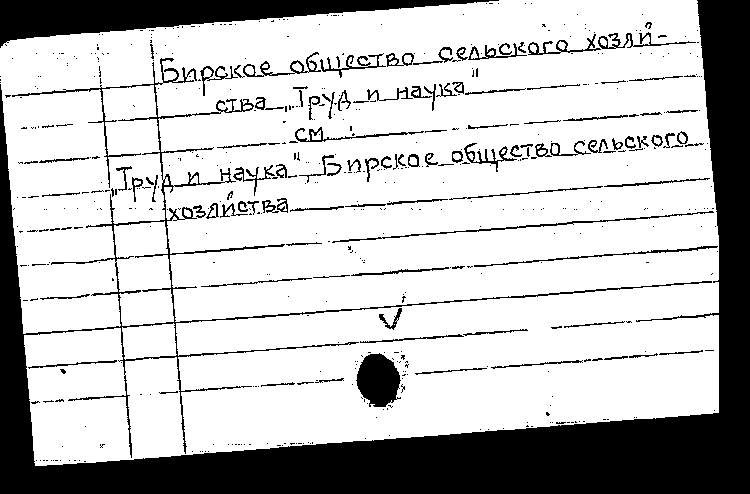 Бирское общество сельского хозяй-
ства „Труд и наука"
см.:
„Труд и наука", Бирское общество сельского
хозяйства